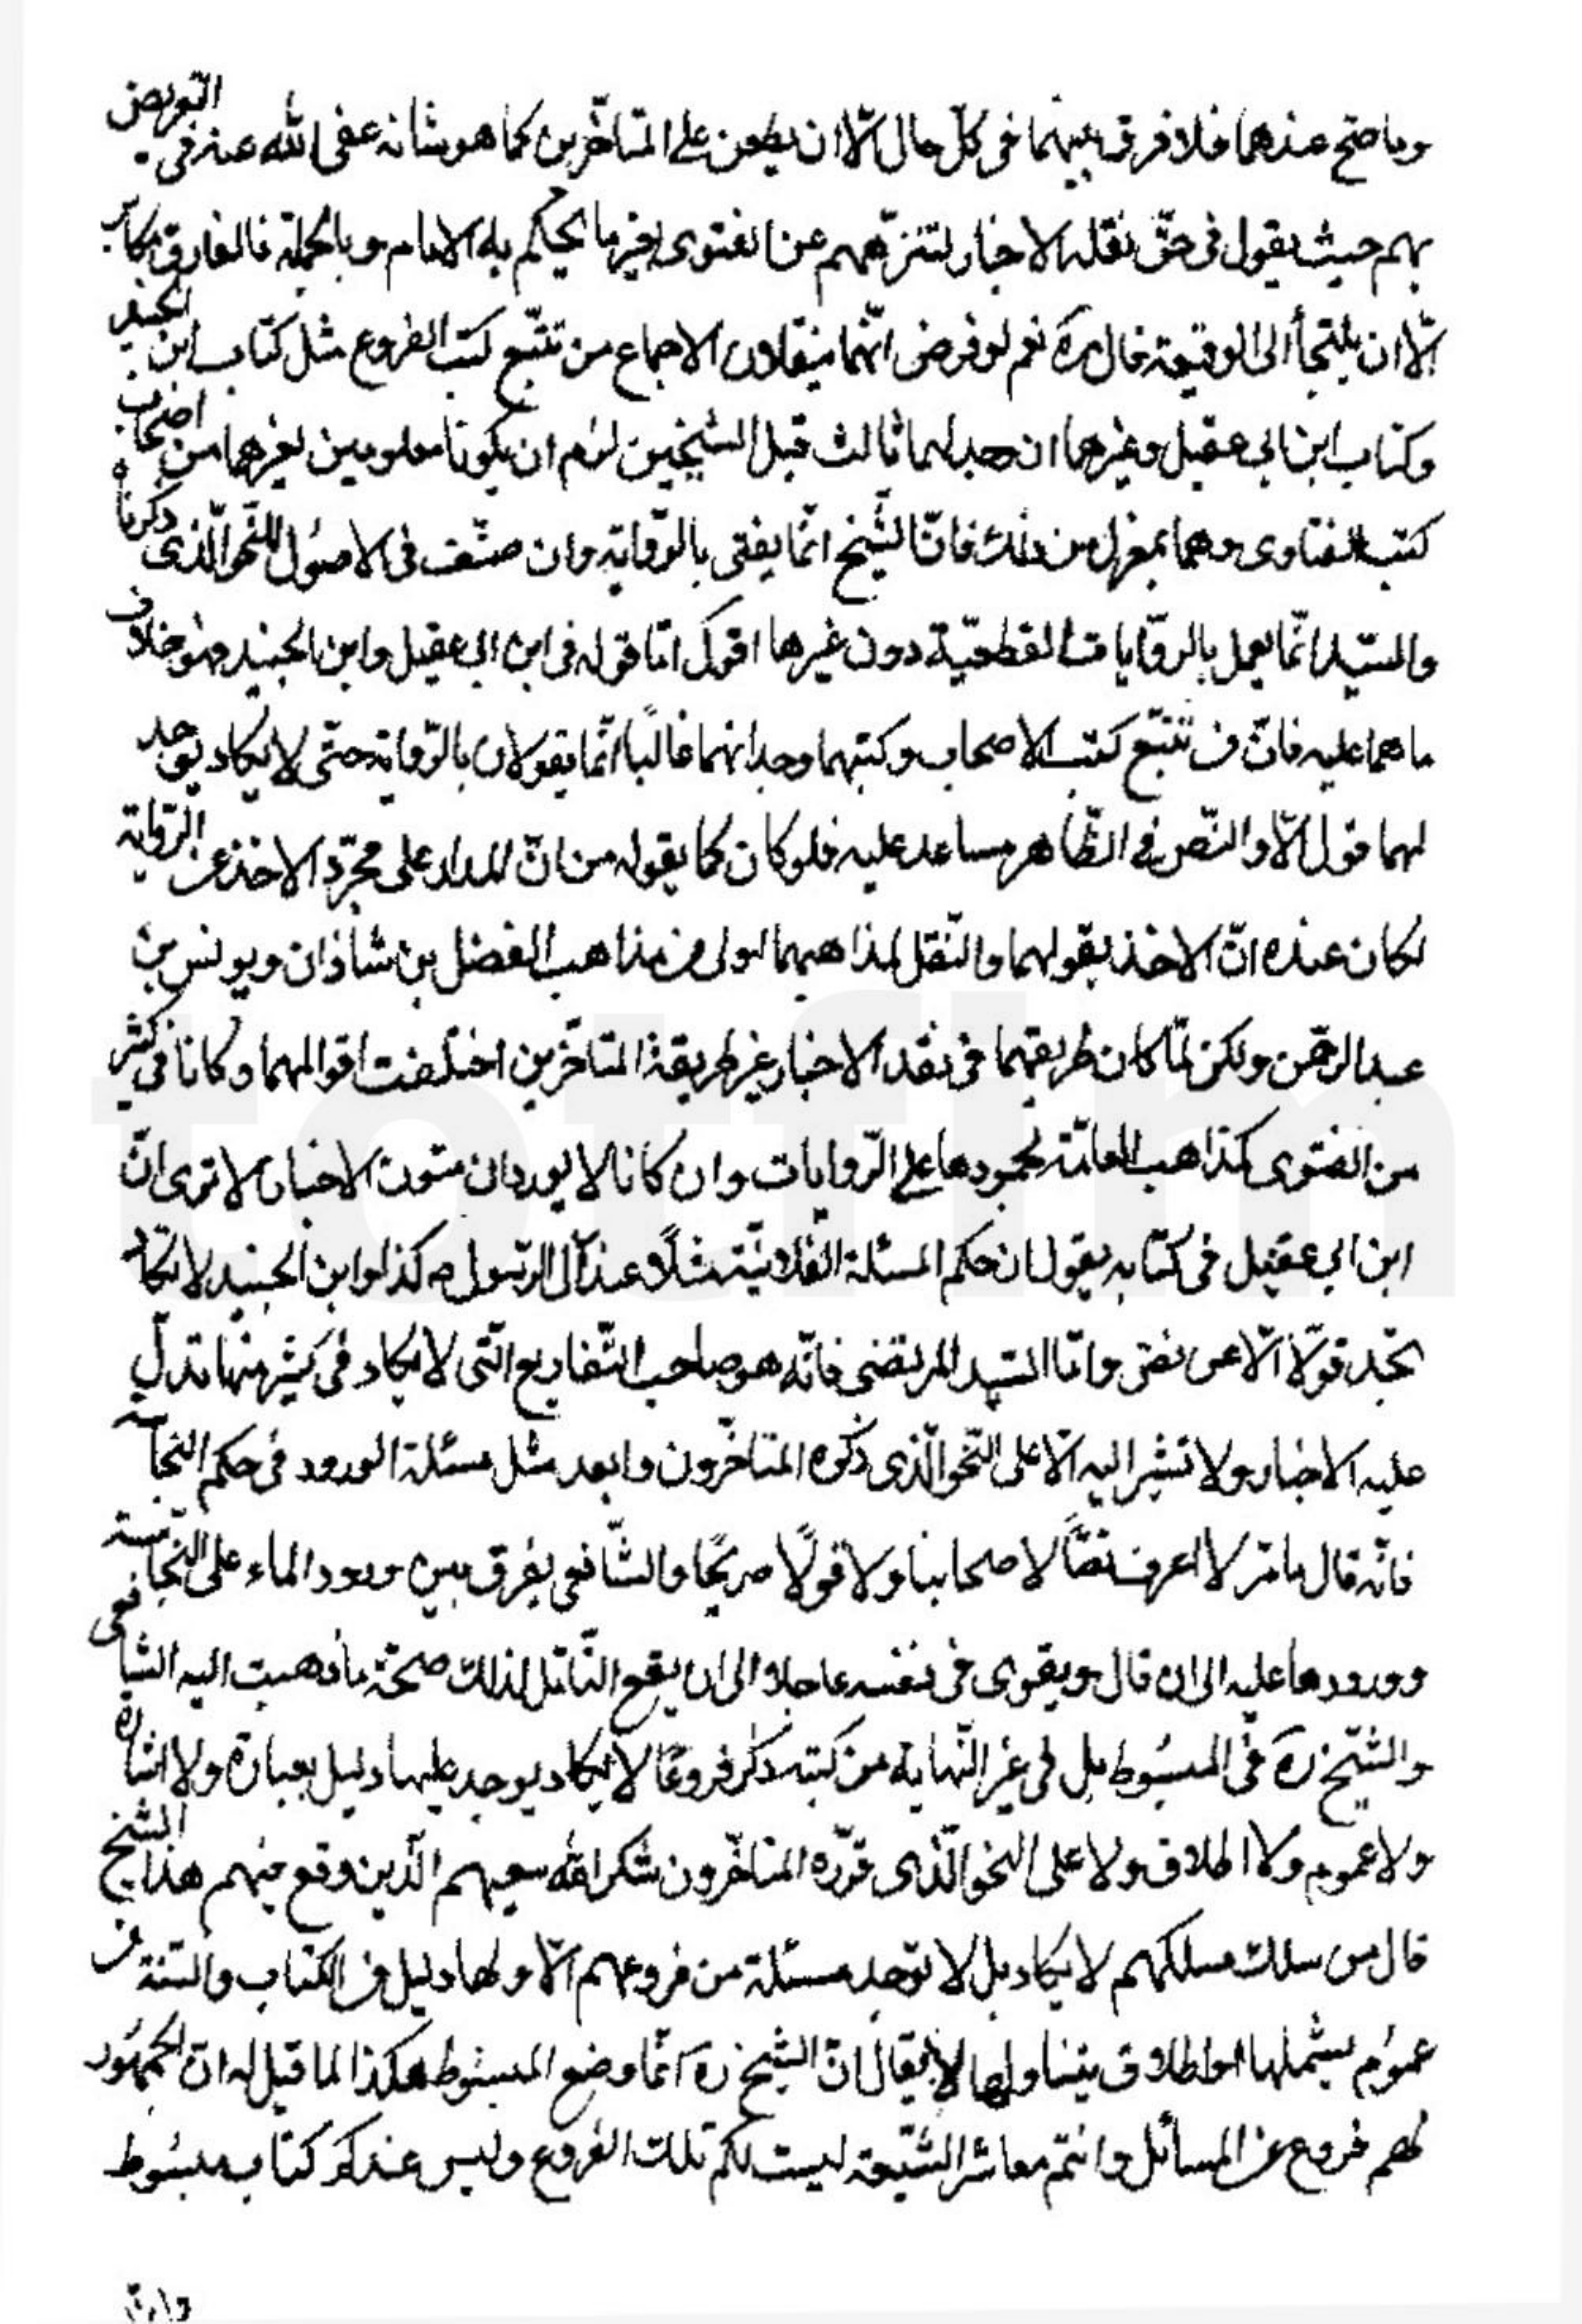 وما صح عندهما فلا فرق بينهما في كلّ حال الّا ان يطعن على المتأخّرين كما هو شانه عفى الله عنه في التعريض
بهم حيث يقول في حقّ نقلة الاخبار لتنزّههم عن الفتوى بغير ما يحكم به الامام وبالجملة فالفارق مكابر
الّا ان يلتجأ الى الوقيعة قال ره نعم لو فرض انّهما ينقلان الاجماع من تتبّع كتب الفروع مثل كتاب ابن الجنيد
وكتاب ابن ابي عقيل وغيرهما ان وجد لهما ثالث قبل الشيخين لزم ان يكونا معلومين لغيرهما من اضراب
كتب الفتاوى وهما بمعزل من ذلك فانّ الشّيخ انّما يفتى بالرّواية وان صنّف في الاصول للنّحو الّذى ذكرناه
والسّيد انّما يعمل بالرّوايات القطعيّة دون غيرها اقول امّا قوله في ابن ابي عقيل وابن الجنيد فهو خلاف
ما هما عليه فانّ من تتبّع كتب الاصحاب وكتبهما وجد انهما غالبًا انّما يقولان بالرّواية حتّى لا يكاد يوجد
لهما قول الّا والنّص في الظّاهر مساعد عليه فلو كان كما يقوله من انّ المدار على مجرّد الاخذ عن الرّواية
لكان عنده انّ الاخذ بقولهما والنّقل لمذاهبهما اولى من مذاهب الفضل بن شاذان ويونس بن
عبد الرحمن ولكن لمّا كان طريقهما في نقد الاخبار غير طريقة المتأخّرين اختلفت اقوالهما وكانا في كثير
من الفتوى كمذاهب العامّة لجمودها على الرّوايات وان كانا لا يوردان متون الاخبار الا ترى انّ
ابن ابي عقيل في كتابه يقول ان حكم المسئلة الفلانيّة مثلًا عند آل الرّسول ص كذا وابن الجنيد لا تكاد
تجد قولًا الّا عن نصّ وامّا السّيد المرتضى فانّه هو صاحب التّفاريع الّتى لا يكاد في كثير منها تدلّ
عليه الاخبار ولا تشير اليه الّا على النّحو الّذى ذكره المتاخّرون وابعد مثل مسئلة الورود في حكم النجاسة
فانّه قال ما مرّ لا اعرف نصًّا لاصحابنا ولا قولًا صريحًا والشّافعى يفرق بين ورود الماء على النّجاسة
وورودها عليه الى ان قال ويقوى في نفسه عاجلا الى ان يقع التّأمّل لذلك صحّة ما ذهبت اليه الشافعى
والشّيخ ره في المبسوط بل في غير النّهاية من كتبه ذكر فروعًا لا يكاد يوجد عليها دليل بعبارة ولا اشارة
ولا عموم ولا اطلاق ولا على النحو الّذى قرّره المتاخّرون شكر الله سعيهم الّذين وقع منهم هذا الشيخ
قال من سلك مسلكهم لا يكاد بل لا توجد مسئلة من فروعهم الّا ولها دليل من الكتاب والسّنة من
عموم يشملها او اطلاق يتناولها لا يقال انّ الشيخ ره انّما وضع المبسوط هكذا لما قيل له انّ الجمهور
لهم فروع عن المسائل وانتم معاشر الشّيعة ليست لكم تلك الفروع وليس عندكم كتاب مبسوط
وان